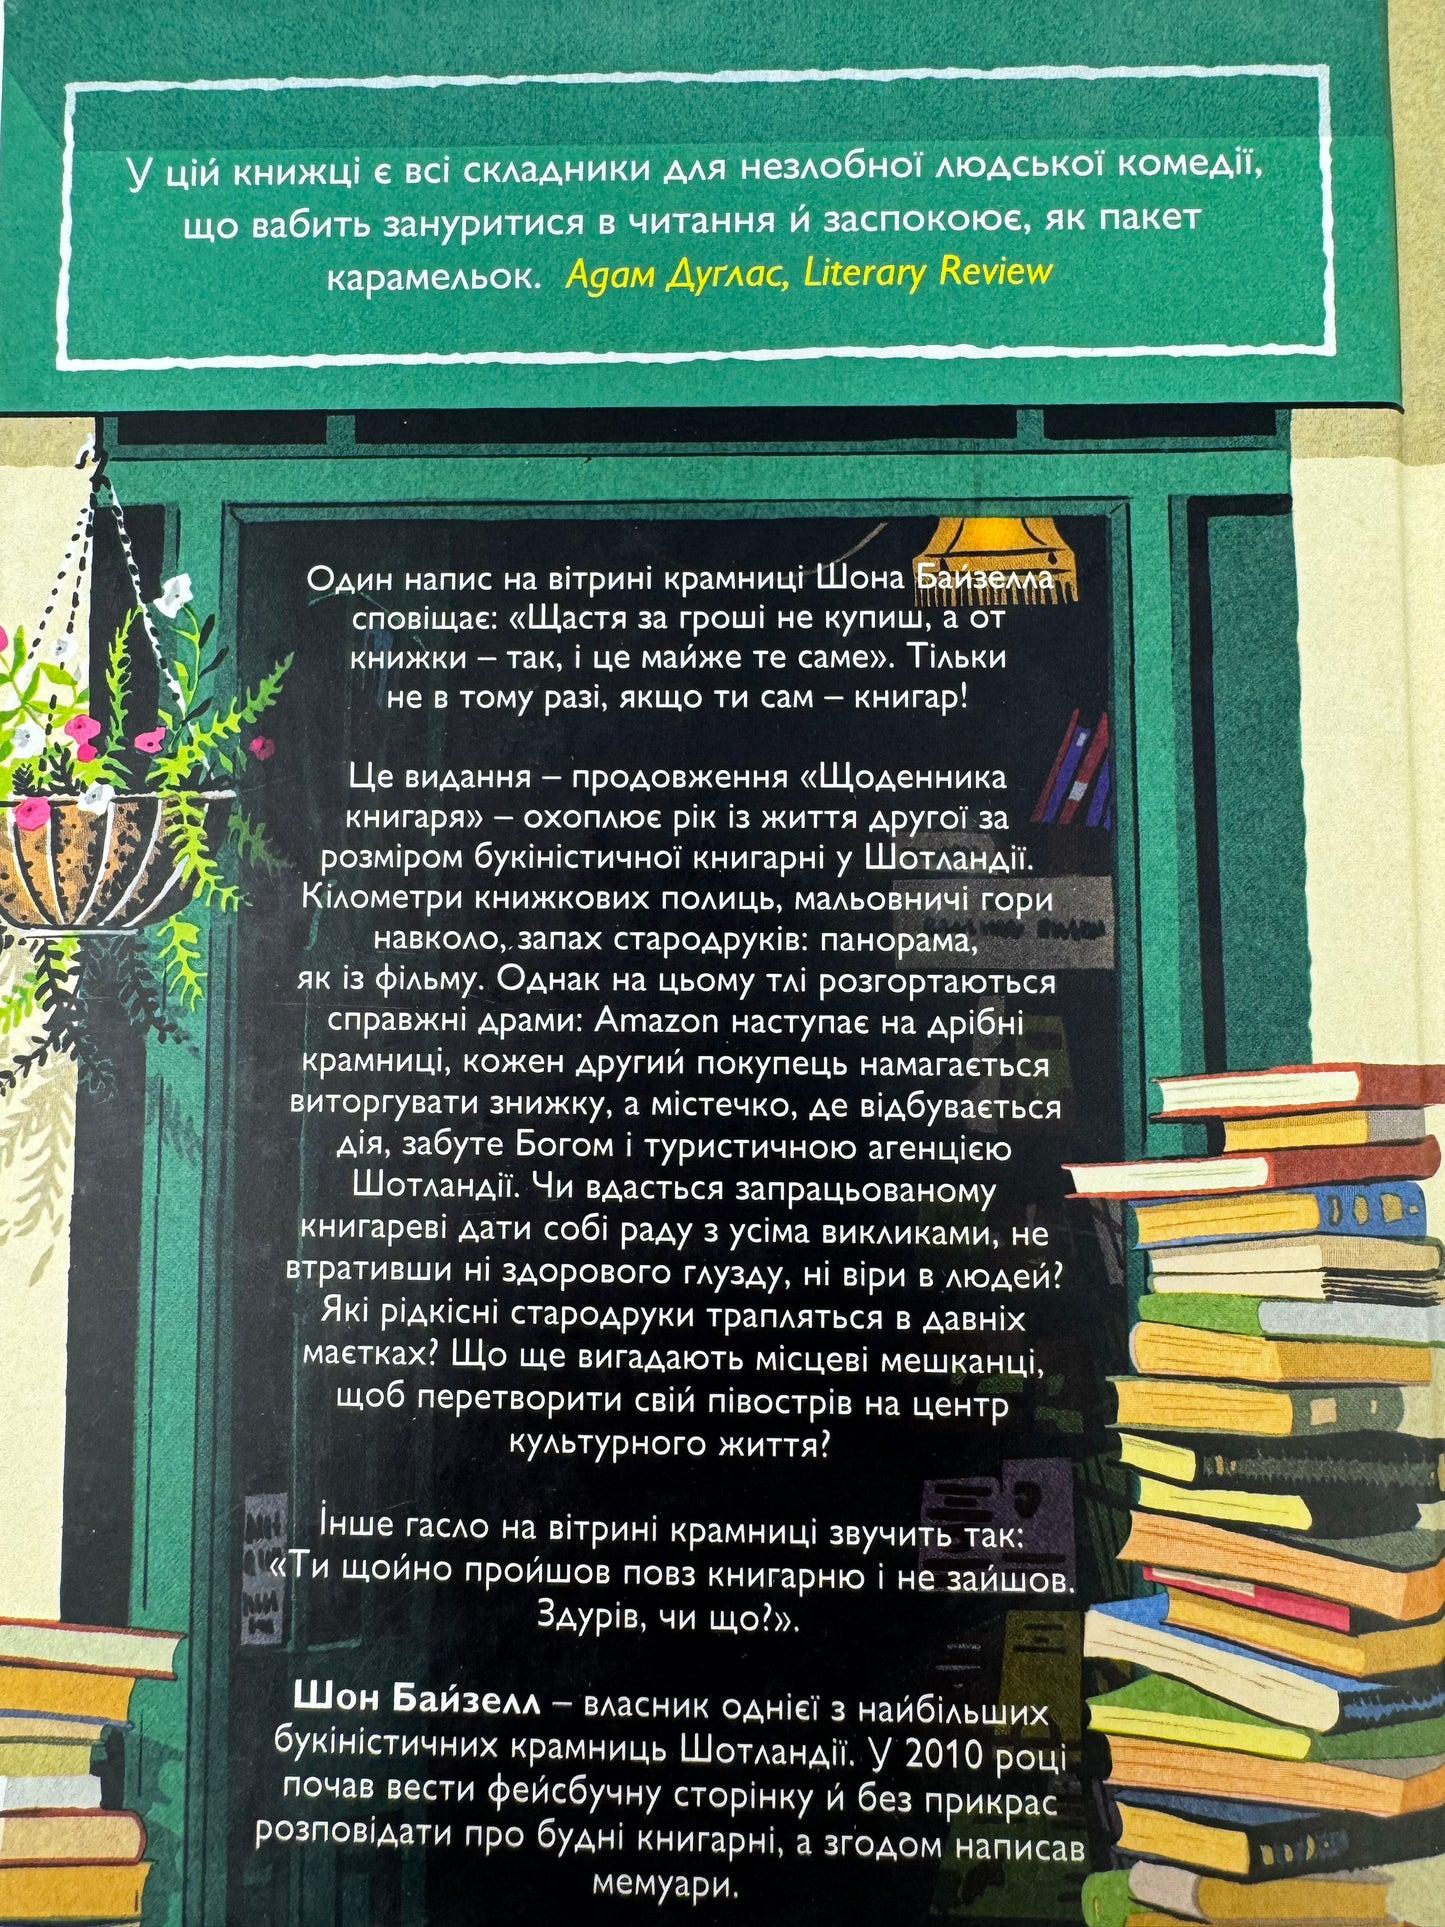 У цій книжці є всі складники для незлобної людської комедії,
що вабить зануритися в читання й заспокоює, як пакет
карамельок. Адам Дуґлас, Literary Review
Один напис на вітрині крамниці Шона Байзелла
сповіщає: «Щастя за гроші не купиш, а от
книжки – так, і це майже те саме». Тільки
не в тому разі, якщо ти сам – книгар!
Це видання – продовження «Щоденника
книгаря» – охоплює рік із життя другої за
розміром букіністичної книгарні у Шотландії.
Кілометри книжкових полиць, мальовничі гори
навколо, запах стародруків: панорама,
як із фільму. Однак на цьому тлі розгортаються
справжні драми: Amazon наступає на дрібні
крамниці, кожен другий покупець намагається
виторгувати знижку, а містечко, де відбувається
дія, забуте Богом і туристичною агенцією
Шотландії. Чи вдасться запрацьованому
книгареві дати собі раду з усіма викликами, не
втративши ні здорового глузду, ні віри в людей?
Які рідкісні стародруки трапляться в давніх
маєтках? Що ще вигадають місцеві мешканці,
щоб перетворити свій півострів на центр
культурного життя?
Інше гасло на вітрині крамниці звучить так:
«Ти щойно пройшов повз книгарню і не зайшов.
Здурів, чи що?».
Шон Байзелл – власник однієї з найбільших
букіністичних крамниць Шотландії. У 2010 році
почав вести фейсбучну сторінку й без прикрас
розповідати про будні книгарні, а згодом написав
мемуари.